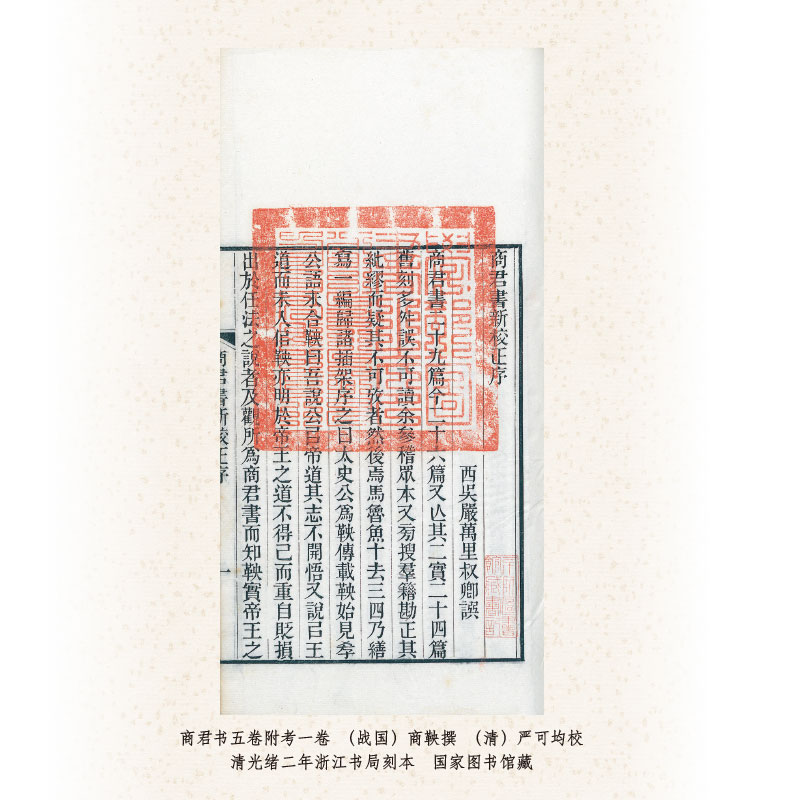 商君書新挍正序
西吳嚴萬里叔卿譔
商君書二十九篇今二十六篇又亾其二實二十四篇
舊刻多舛誤不可讀余參稽眾本又㫄搜羣籍勘正其
紕繆而疑其不可攷者然後焉馬魯魚十去三四乃繕
寫一編歸諸插架序之曰太史公爲鞅傳載鞅始見孝
公語未合鞅曰吾說公㠯帝道其志不開悟又說㠯王
道而未入倌鞅亦明於帝王之道不得已而重自貶損
出於任法之說者及觀所爲商君書而知鞅實帝王之
商君書新挍正序
一
商君书五卷附考一卷 （战国）商鞅撰 （清）严可均校
清光绪二年浙江书局刻本 国家图书馆藏